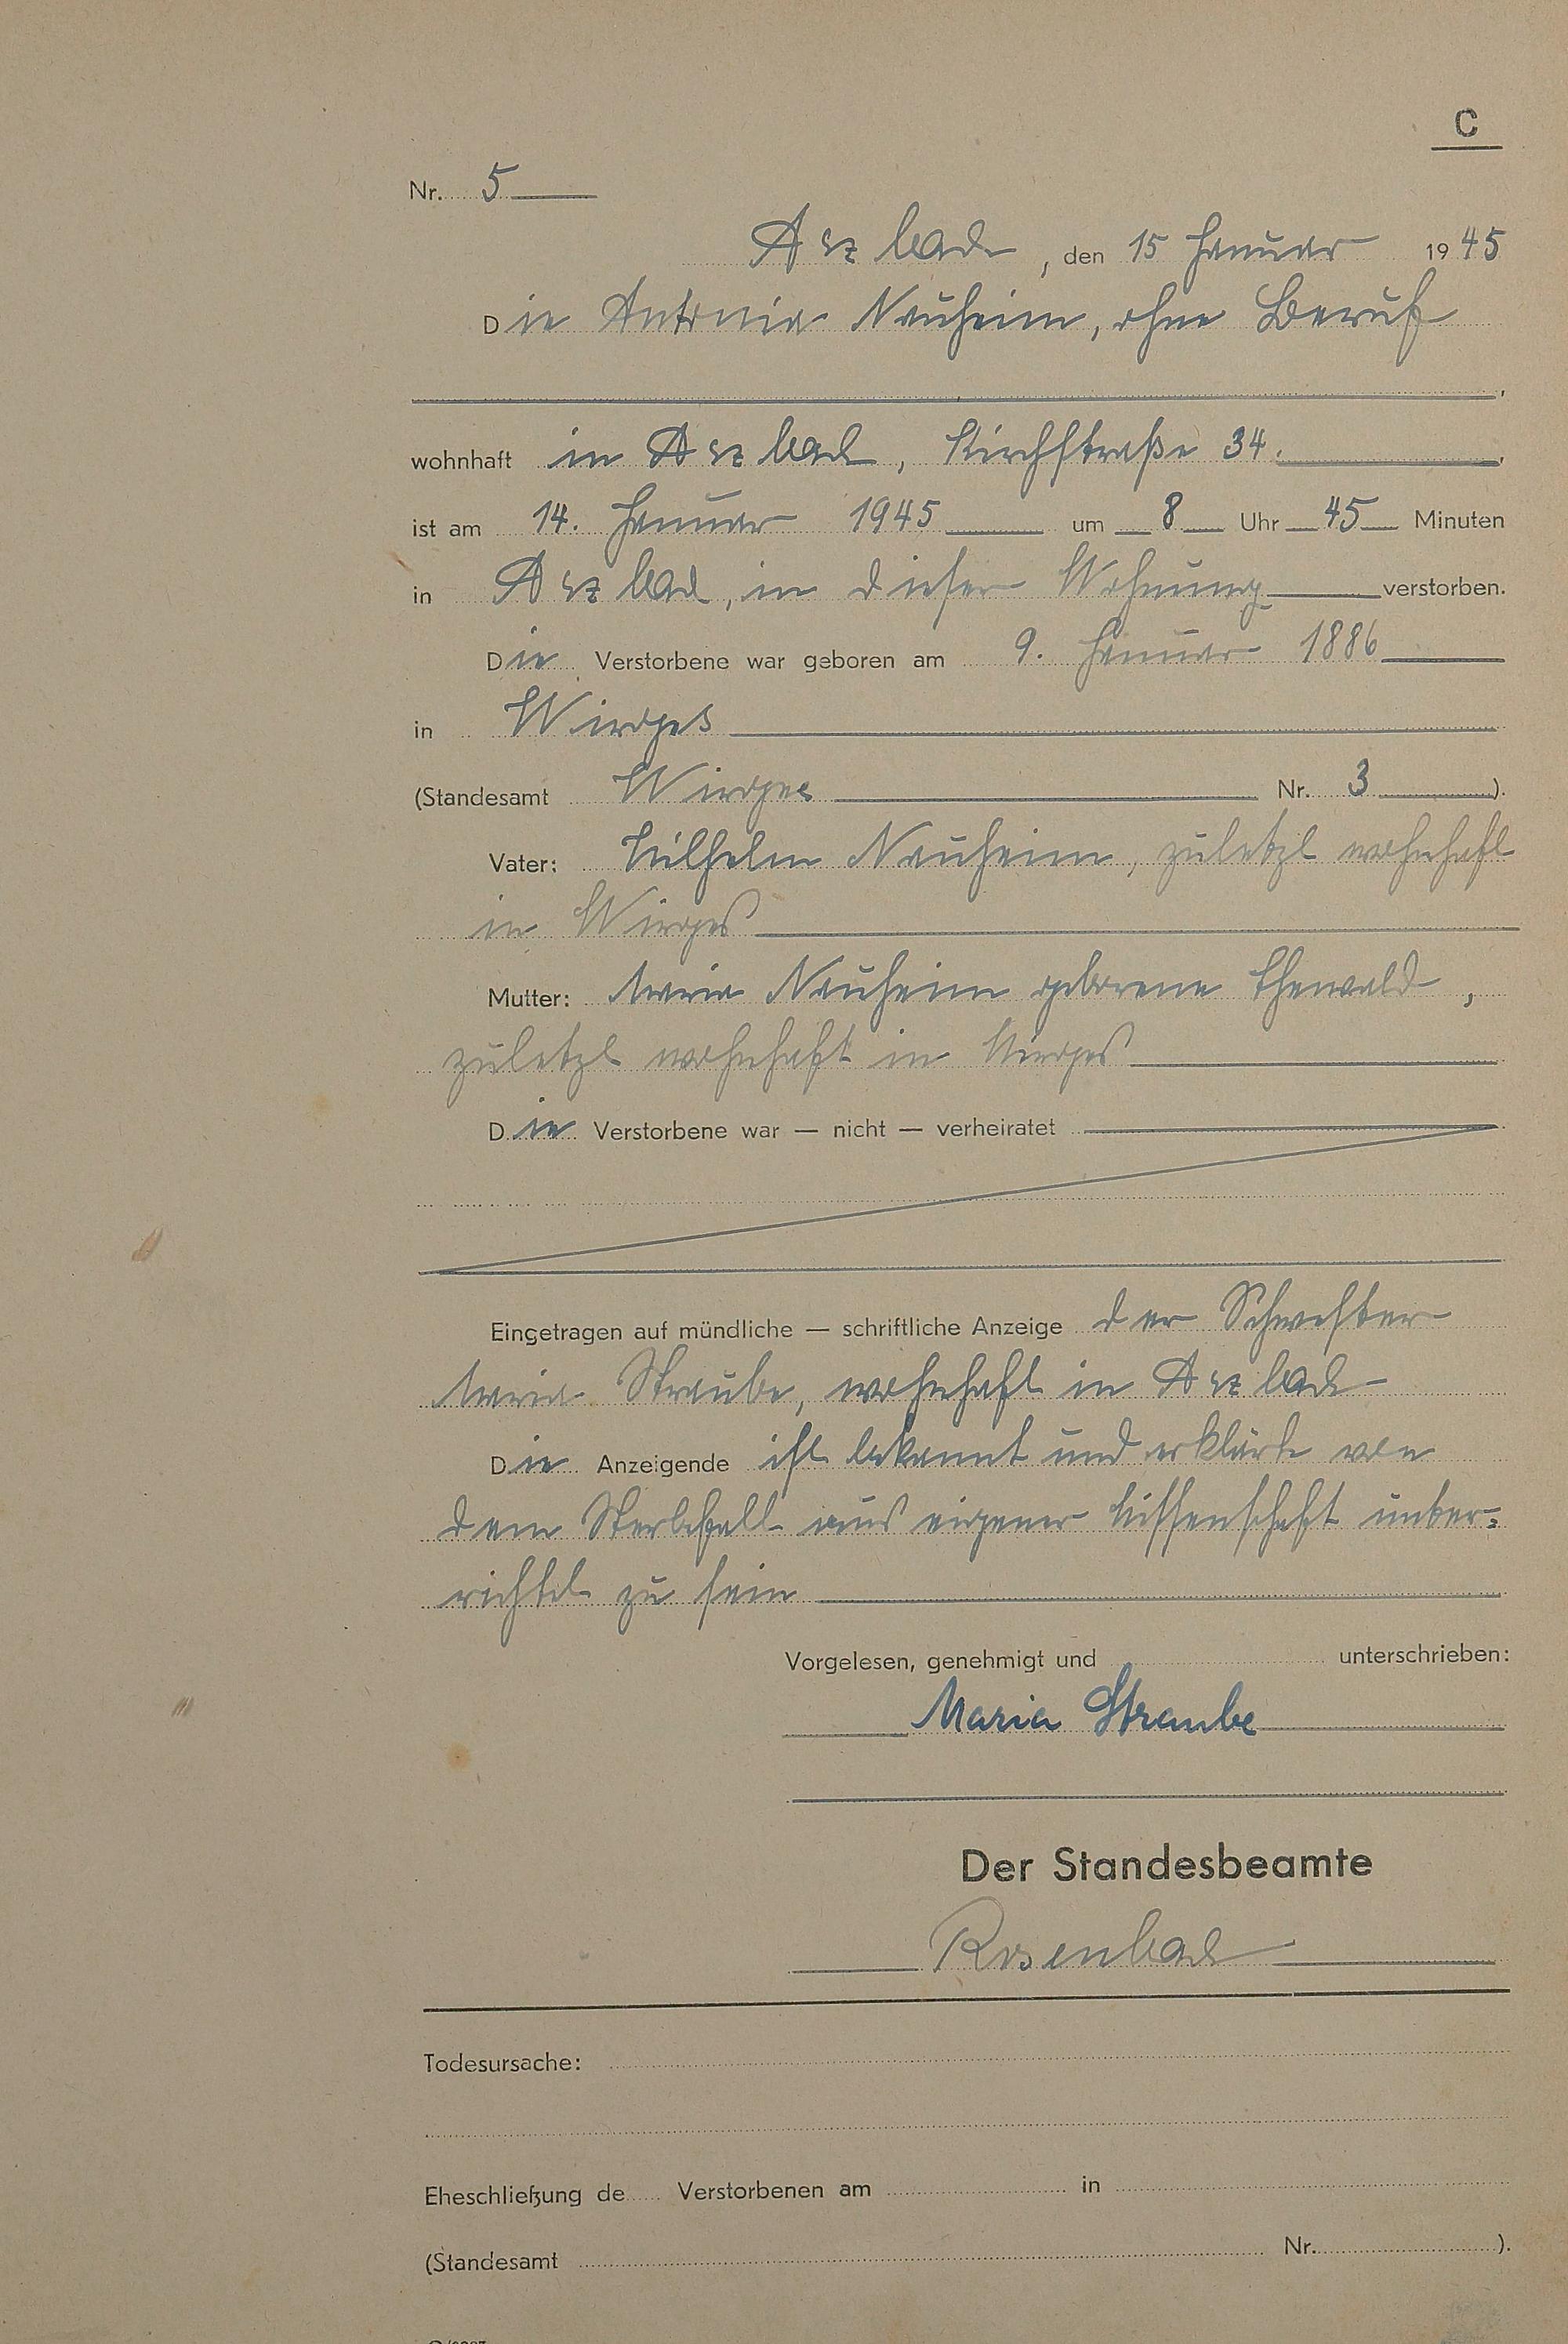 C
Nr. 5
Arzbach, den 15 Januar 1945
Die Antonia Nauheim, ohne Beruf
,
wohnhaft in Arzbach, Kirchstraße 34.
ist am 14. Januar 1945 um 8 Uhr 45 Minuten
in Arzbach, in dieser Wohnung verstorben.
Die Verstorbene war geboren am 9. Januar 1886
in Wirges
(Standesamt Wirges Nr. 3).
Vater: Wilhelm Nauheim, zuletzt wohnhaft
in Wirges
Mutter: Maria Nauheim geborene Thewald,
zuletzt wohnhaft in Wirges
Die Verstorbene war — nicht — verheiratet
Eingetragen auf mündliche — schriftliche Anzeige der Schwester
Maria Straube, wohnhaft in Arzbach
Die Anzeigende ist bekannt und erklärte von
dem Sterbefall aus eigener Wissenschaft unter=
richtet zu sein
Vorgelesen, genehmigt und unterschrieben:
Maria Straube
Der Standesbeamte
Rosenbach
Todesursache:
Eheschließung de Verstorbenen am in
(Standesamt Nr. ).